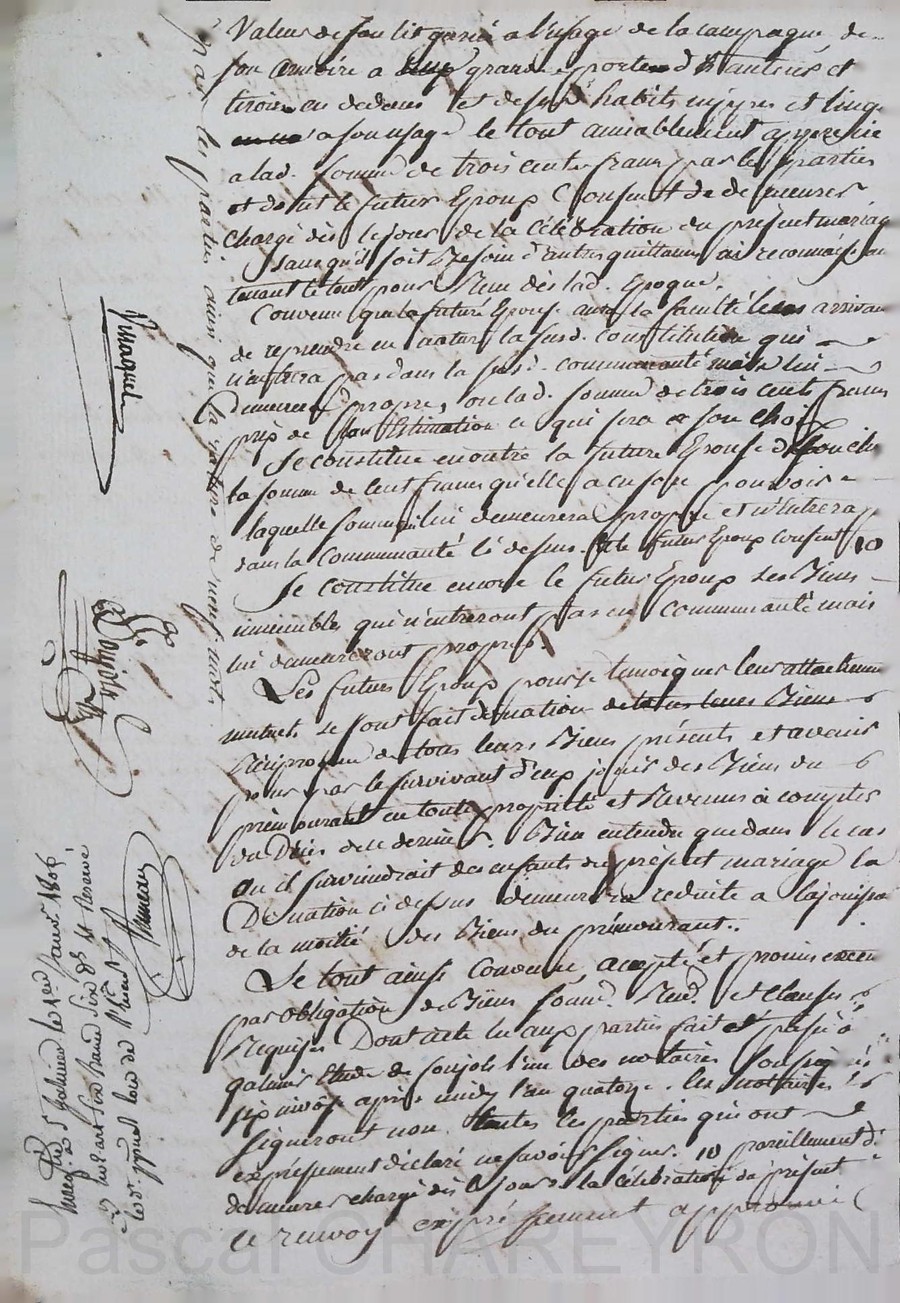 Valeur de son lit garni a l'usage de la campagne de
son armoire a grande portes et
tiroirs en dedans et de ses habits nippes et linge
a son usage le tout amiablement apprecié
a lad. somme de trois cents francs par les parties
et dont le futur Epoux Consent de demeurer
chargé dès le jour de la célébration du present mariag
sans qu'il soit Besoin d'autres quittances ni reconnaissan
tenant le tout pour Recu dès lad. Epoque.
Convenu que la future Epouse aura la faculté
de reprendre en nature la susd. constitution qui
n'entrera pas dans la susd. communauté mais lui
demeurera propre, ou lad. somme de trois cents francs
prix de son Estimation ce qui sera a son choix
Se constitue encontre la future Epouse
la somme de cent francs qu'elle a en son pouvoir
laquelle somme lui demeurera propre et n'Entrera
dans la Communauté ci dessus. le futur Epoux consent 10
Se constitue encore le futur Epoux ses Biens
immeuble qui n'entreront pas en communauté mais
lui demeureront propres.
Les futurs Epoux pour se temoigner leur attachemen
mutuel se sont fait donation de tous leurs Biens
Reciproque de tous leurs Biens présents et avenir
pour par le survivant d'eux jouir des Biens du
prémourant en toute propriété et Revenus à compter
du Décès de ce dernier. Bien entendu que dans le cas
ou il surviendrait des enfants du présent mariage la
Donation ci dessus demeurera reduite a la jouissa
de la moitié des Biens du prémourant.
Le tout ainsi Convenu, accepté et promis execu
par obligation de Biens soum. Ren. et Clauses
Requises Dont acte lu aux parties fait et passé à
galmier Etude de l'un des notaires soussignés
six nivose après midy l'an quatorze. les notaires
signeront non les parties qui ont
expressement déclaré ne savoir signer. 10 pareillement d
demeurer chargé dès le jour de la célébration du présent
ce renvoy expressement approuvé
par les parties ainsi que la rature de neuf mots
St Galmier le 1er janvr. 1806,